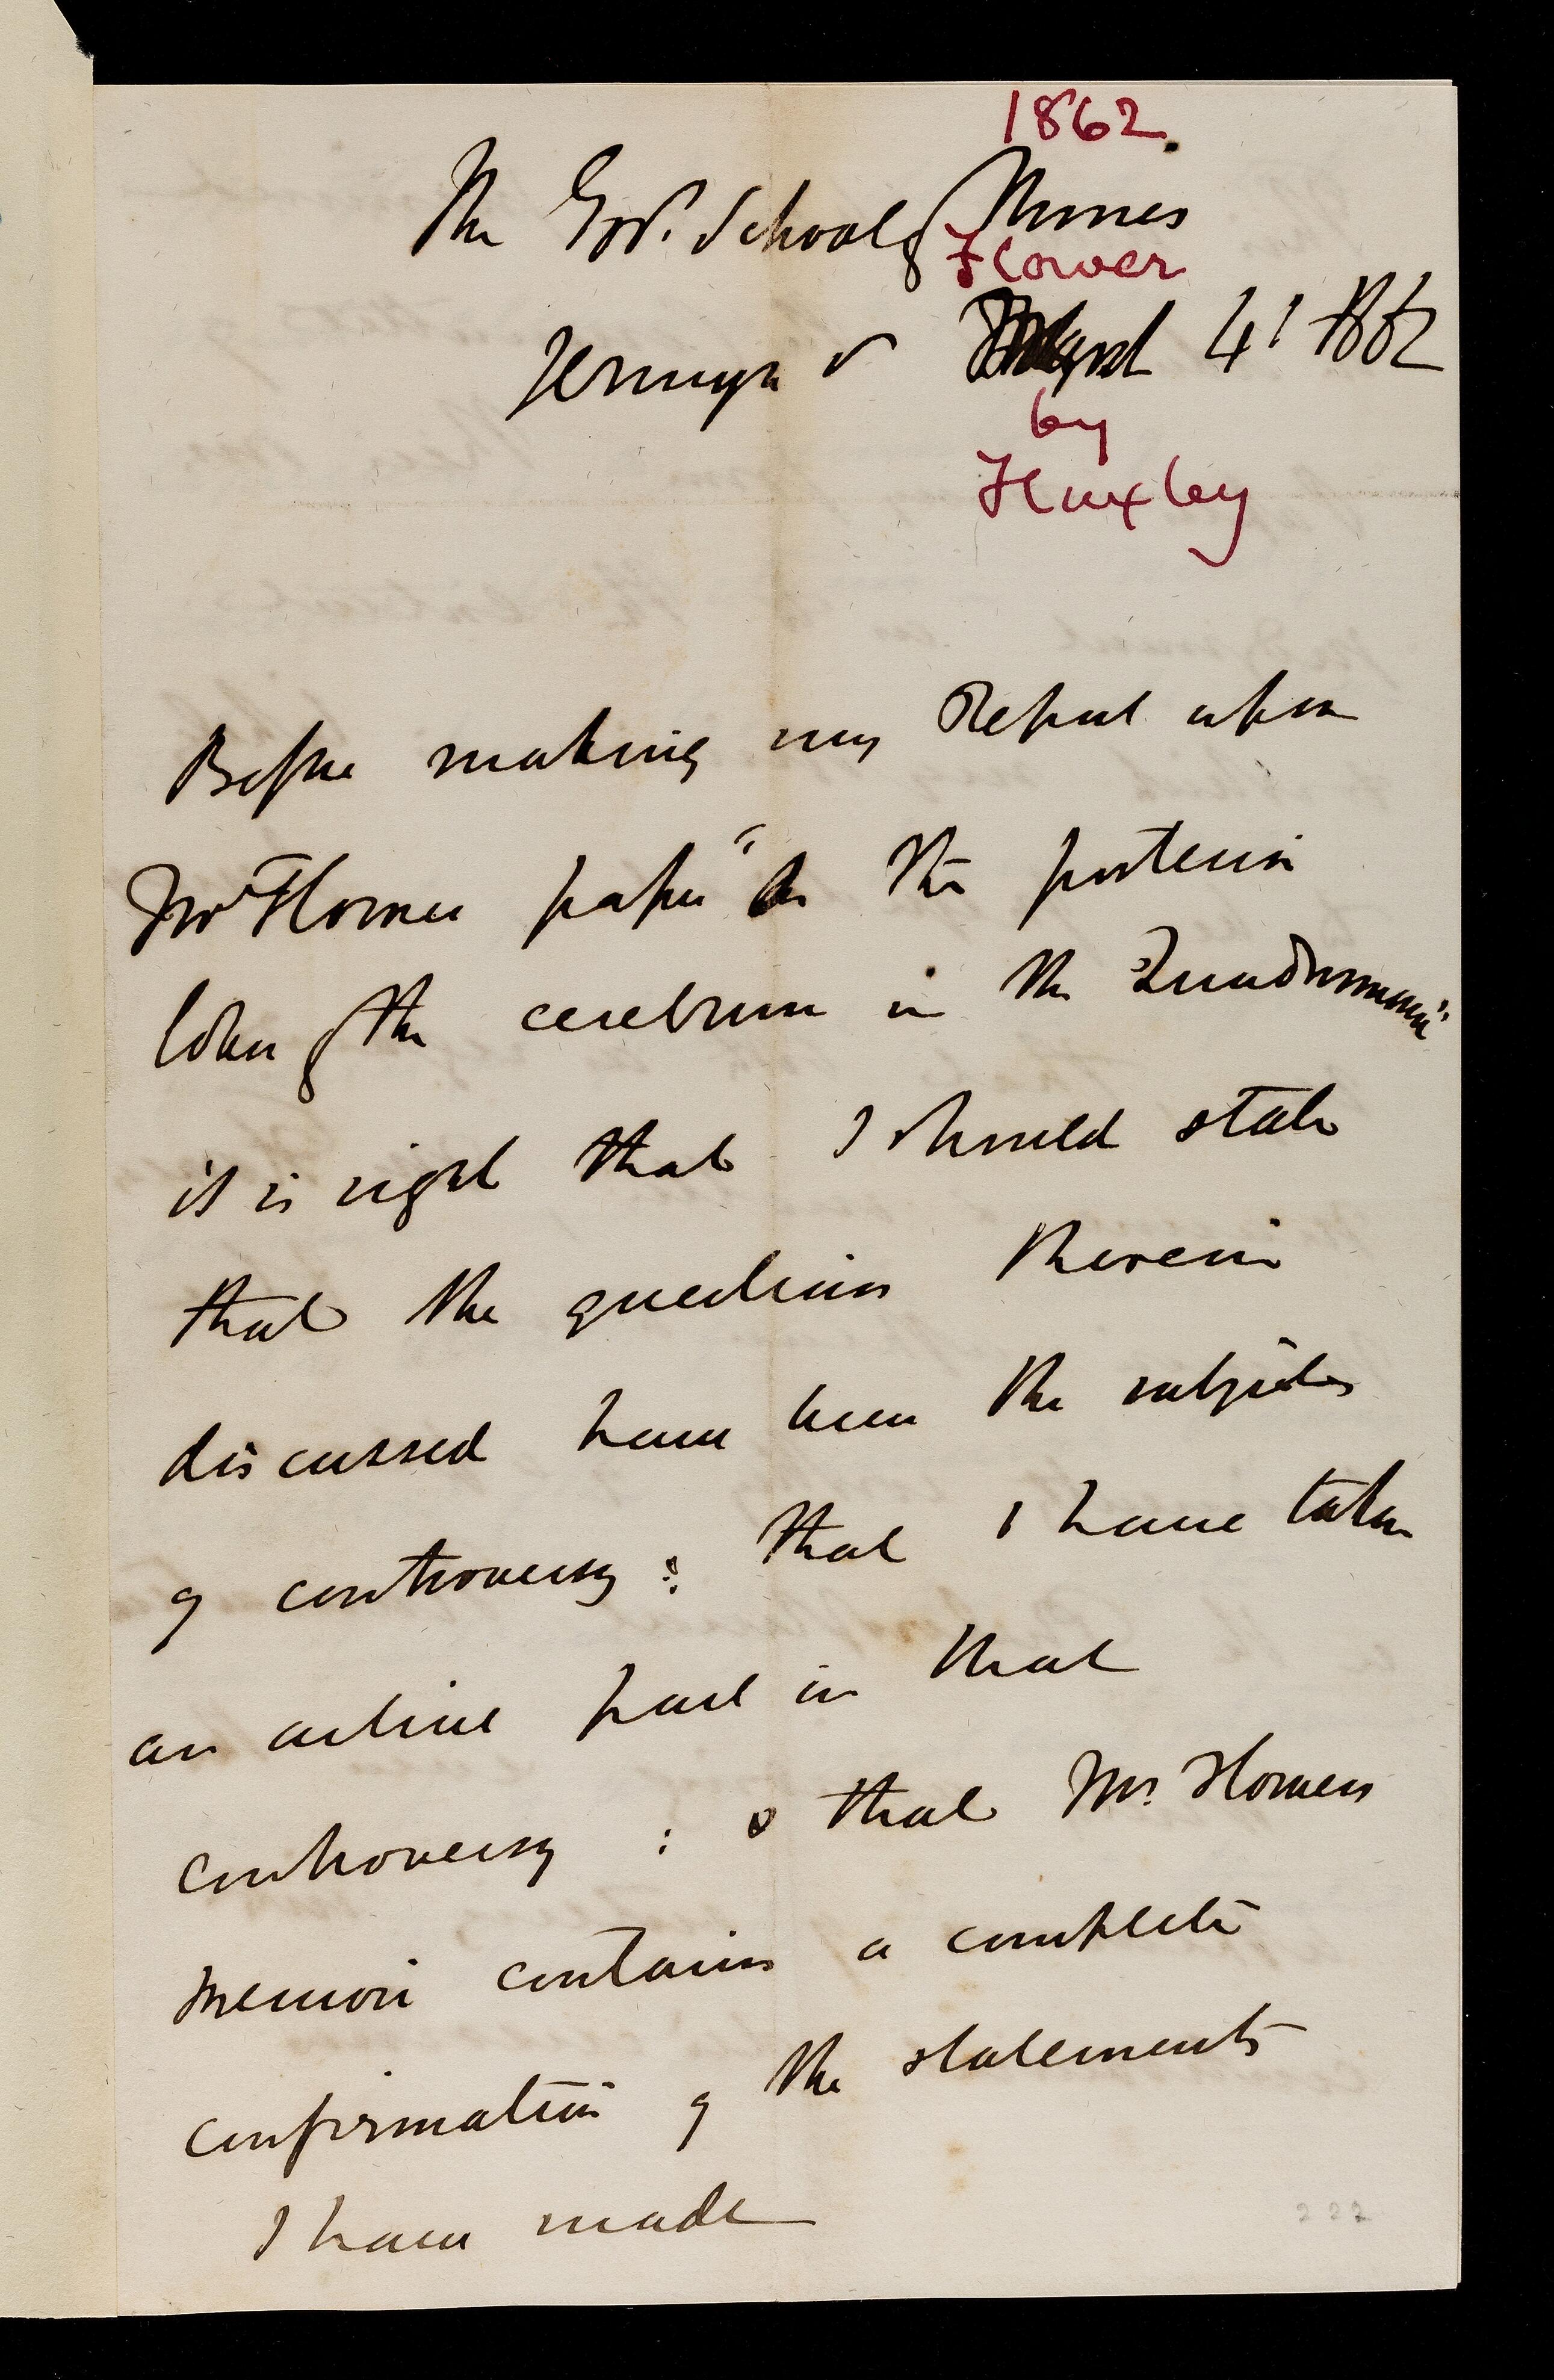 1862.
The Govt. School of Mines
Flower
Jermyn St March 4th 1862
by
Huxley
Before making my Report upon
Mr Flower paper "On the posterior
lobes of the cerebrum in the Quadrumana"
it is right that I should state
that the questions therein
discussed have been the subjects
of controversy: that I have taken
an active part in that
controversy : & that Mr. Flowers
memoir contains a complete
confirmation of the statements
I have made
222